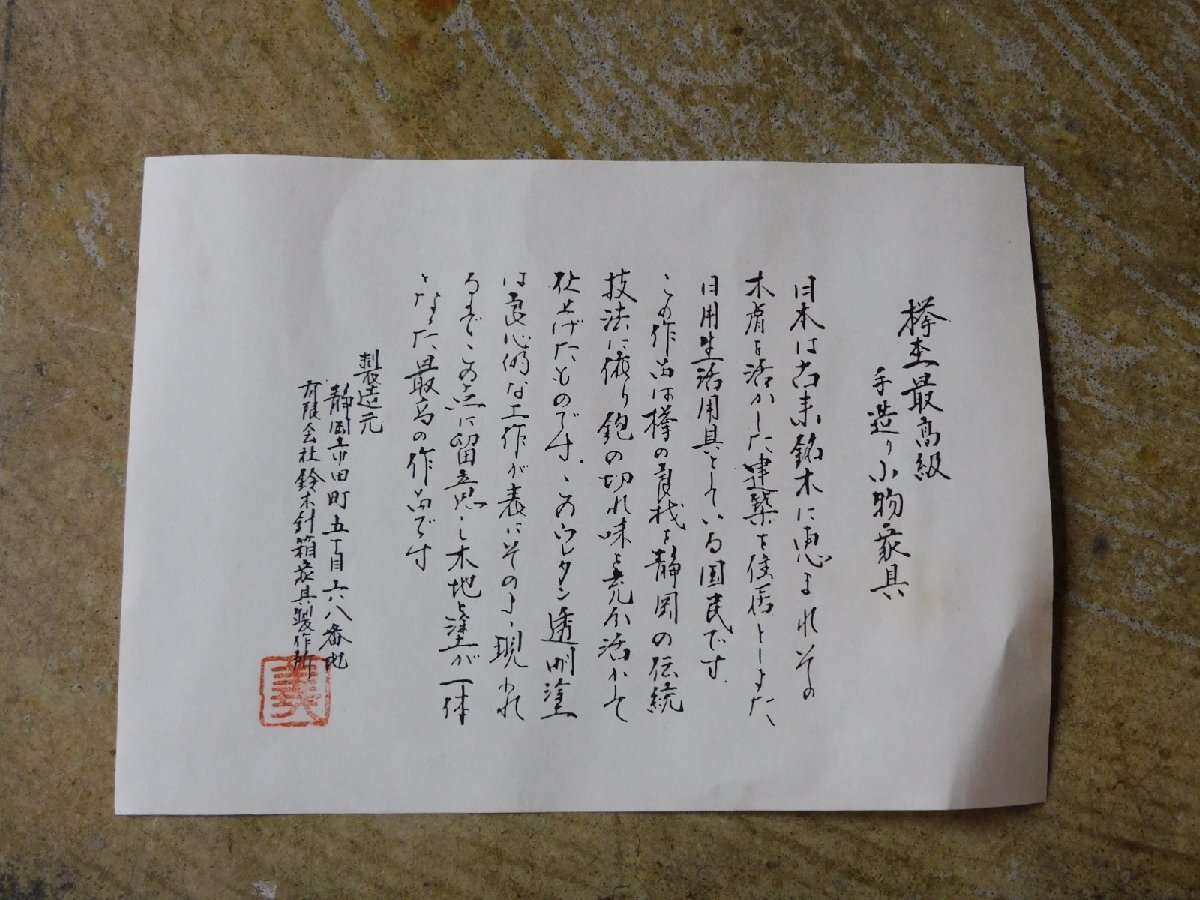 欅杢最高級
手造り小物家具
日本は古来銘木に恵まれその
木肩を活かした建築を住居としまた、
日用生活用具としている国民です.
この作品は欅の良材を静岡の伝統
技法に依り鉋の切れ味を充分活かして
仕上げたものです.このウレタン透明塗
は良心的な工作が表にそのまゝ現われ
るまで、この点に留意し木地と塗が一体
となった最高の作品です
製造元
静岡市田町五丁目六八番地
有限会社鈴木針箱家具製作所